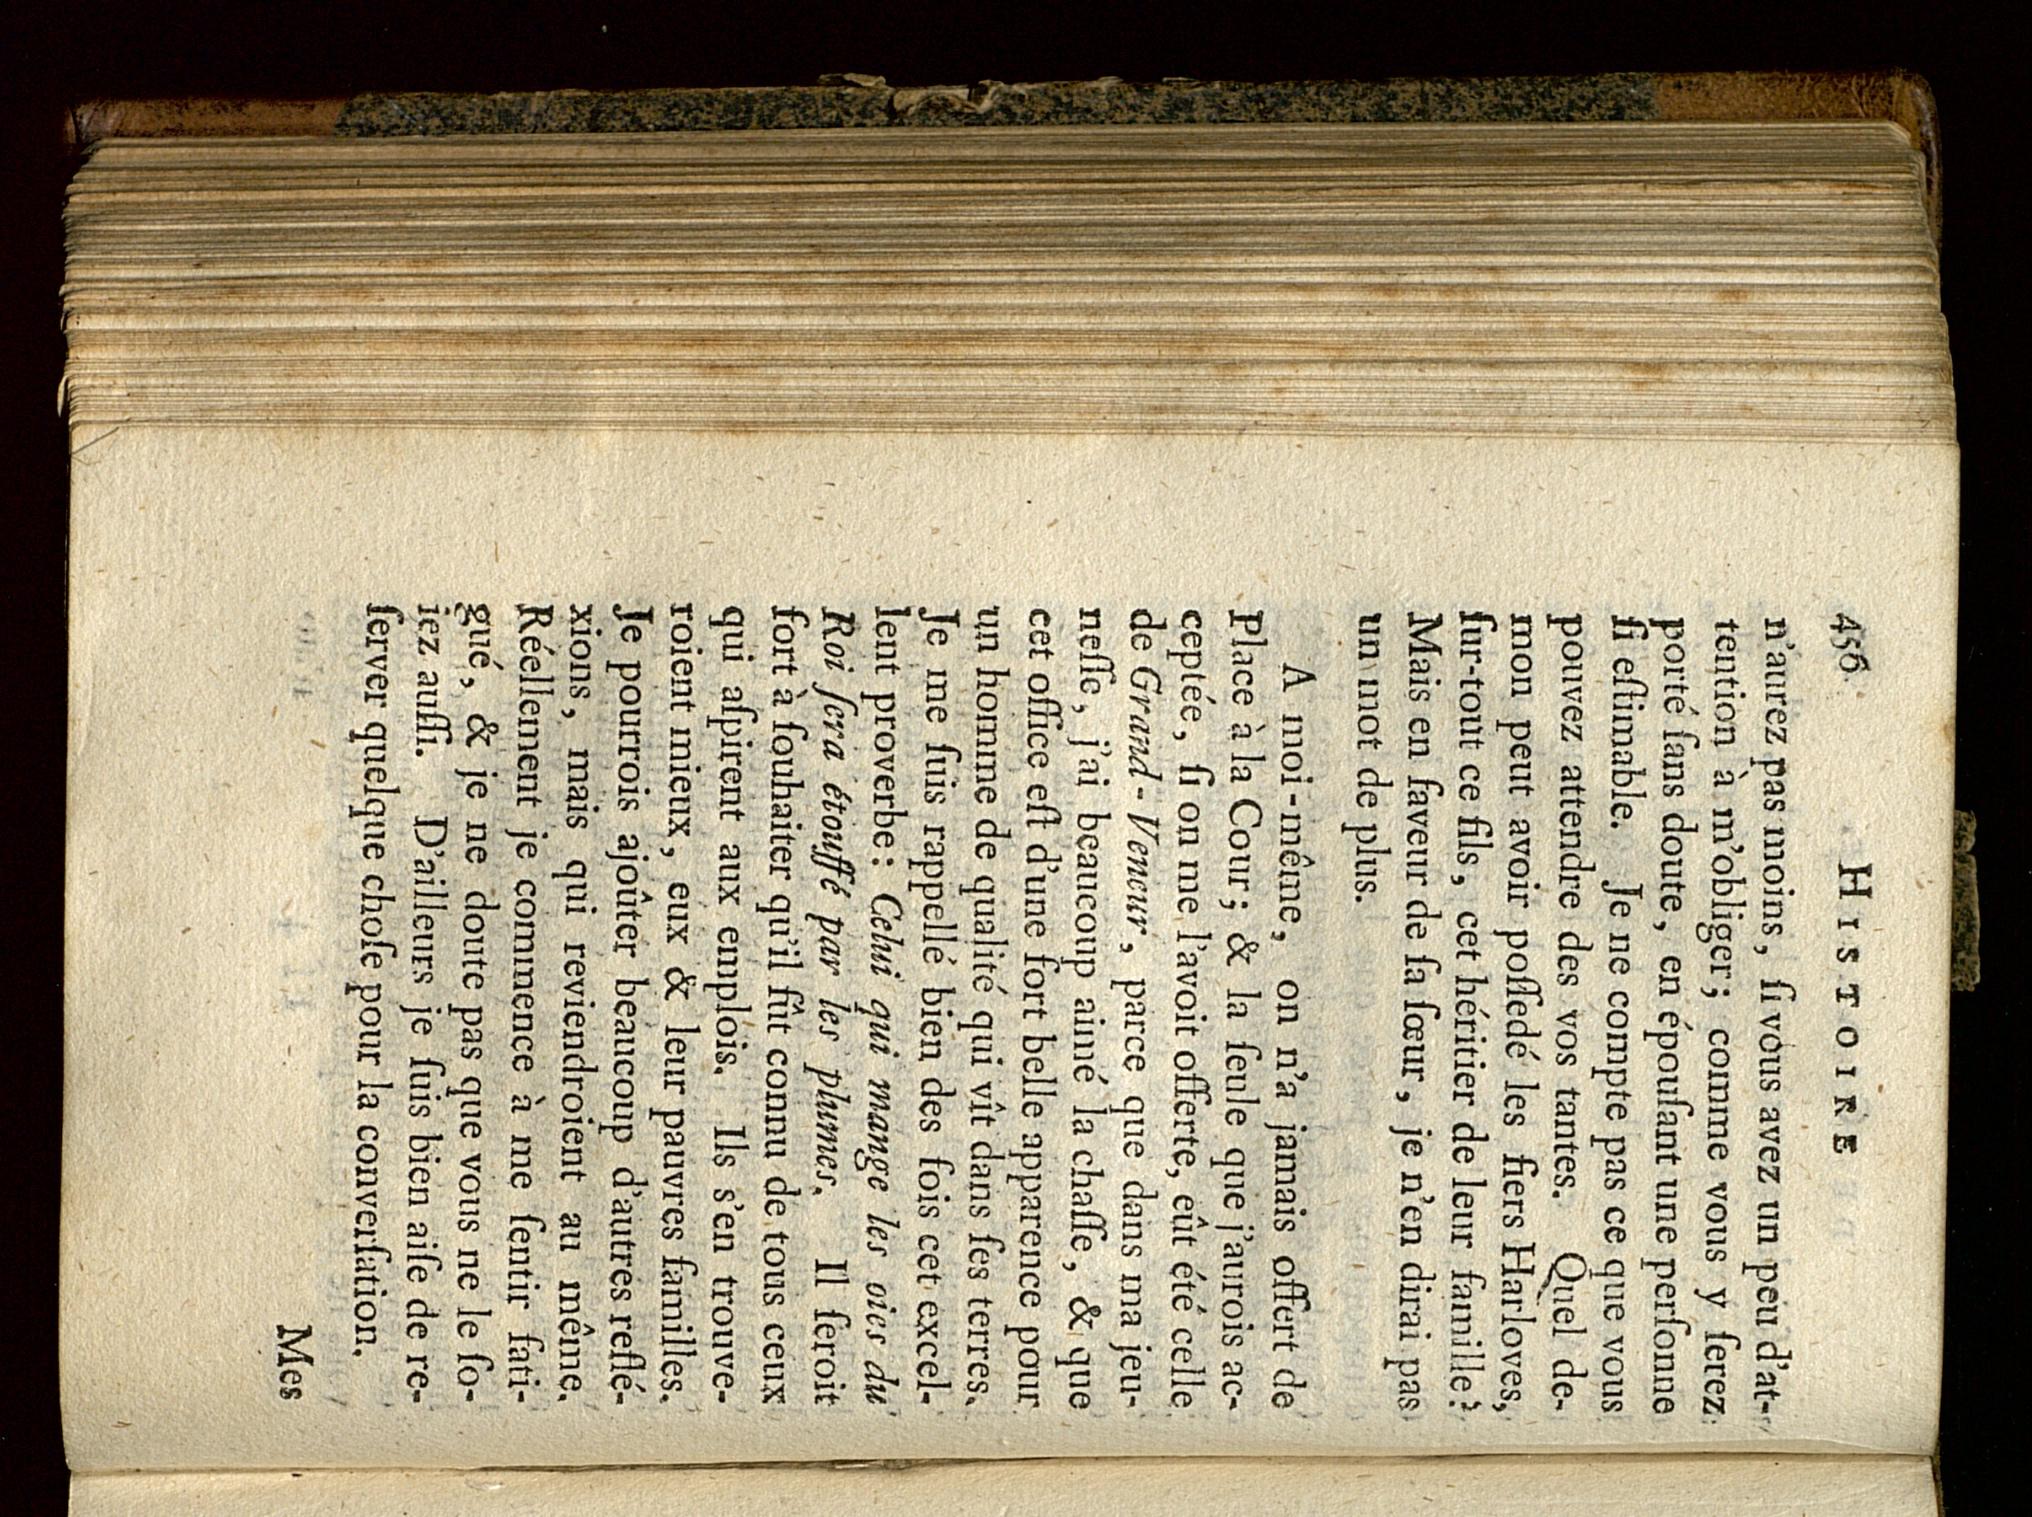 456 HISTOIRE
n'aurez pas moins, ſi vous avez un peu d'at-
tention à m'obliger; comme vous y ſerez
porté ſans doute, en épouſant une perſonne
ſi eſtimable. Je ne compte pas ce que vous
pouvez attendre des vos tantes. Quel de-
mon peut avoir poſſedé les fiers Harloves,
ſur-tout ce fils, cet héritier de leur famille?
Mais en faveur de ſa ſœur, je n'en dirai pas
un mot de plus.
A moi-même, on n'a jamais offert de
Place à la Cour; & la ſeule que j'aurois ac-
ceptée, ſi on me l'avoit offerte, eût été celle
de Grand-Veneur, parce que dans ma jeu-
neſſe, j'ai beaucoup aimé la chaſſe, & que
cet office eſt d'une fort belle apparence pour
un homme de qualité qui vît dans ſes terres.
Je me ſuis rappellé bien des fois cet excel-
lent proverbe: Celui qui mange les oies du
Roi ſera étouffé par les plumes. Il ſeroit
fort à ſouhaiter qu'il fût connu de tous ceux
qui aſpirent aux emplois. Ils s'en trouve-
roient mieux, eux & leur pauvres familles.
Je pourrois ajoûter beaucoup d'autres reflé-
xions, mais qui reviendroient au même.
Réellement je commence à me ſentir fati-
gué, & je ne doute pas que vous ne le ſo-
iez auſſi. D'ailleurs je ſuis bien aiſe de re-
ſerver quelque choſe pour la converſation.
Mes